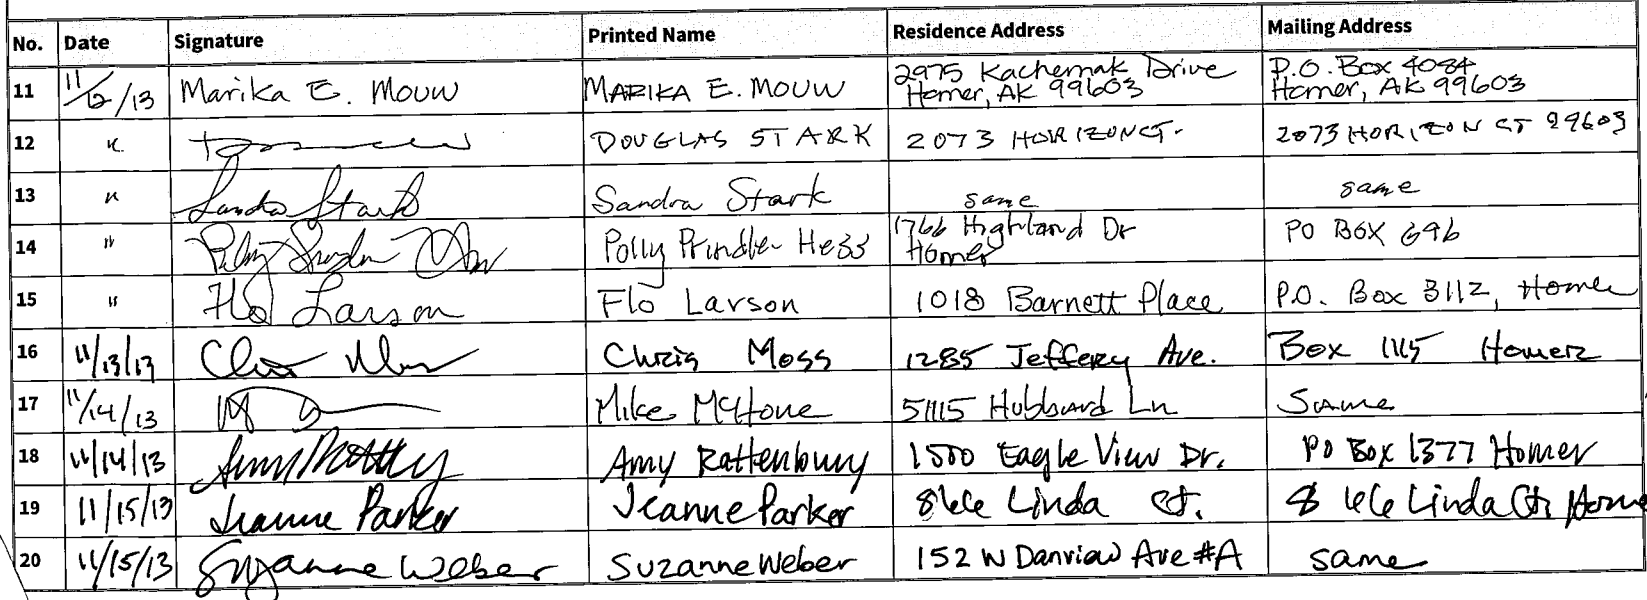 No. Date Signature Printed Name Residence Address Mailing Address
11 11/12/13 Marika E. Mouw MARIKA E. MOUW 2975 Kachemak Drive Homer, AK 99603 P.O. Box 4084 Homer, AK 99603
12 " DOUGLAS STARK 2073 HORIZON CT. 2073 HORIZON CT 99603
13 " Sandra Stark Sandra Stark same same
14 " Polly Prindle Hess Polly Prindle-Hess 1766 Highland Dr Homer PO BOX 696
15 " Flo Larson Flo Larson 1018 Barnett Place P.O. Box 3112, Homer
16 11/13/13 Chris Moss Chris Moss 1285 Jeffery Ave. Box 1115 Homer
17 11/14/13 Mike McHone 51115 Hubbard Ln Same
18 11/14/13 Amy Rattenbury 1500 Eagle View Dr. PO Box 1377 Homer
19 11/15/13 Jeanne Parker Jeanne Parker 866 Linda Ct. 866 Linda Ct. Home
20 11/15/13 Suzanne Weber Suzanne Weber 152 W Danview Ave #A same